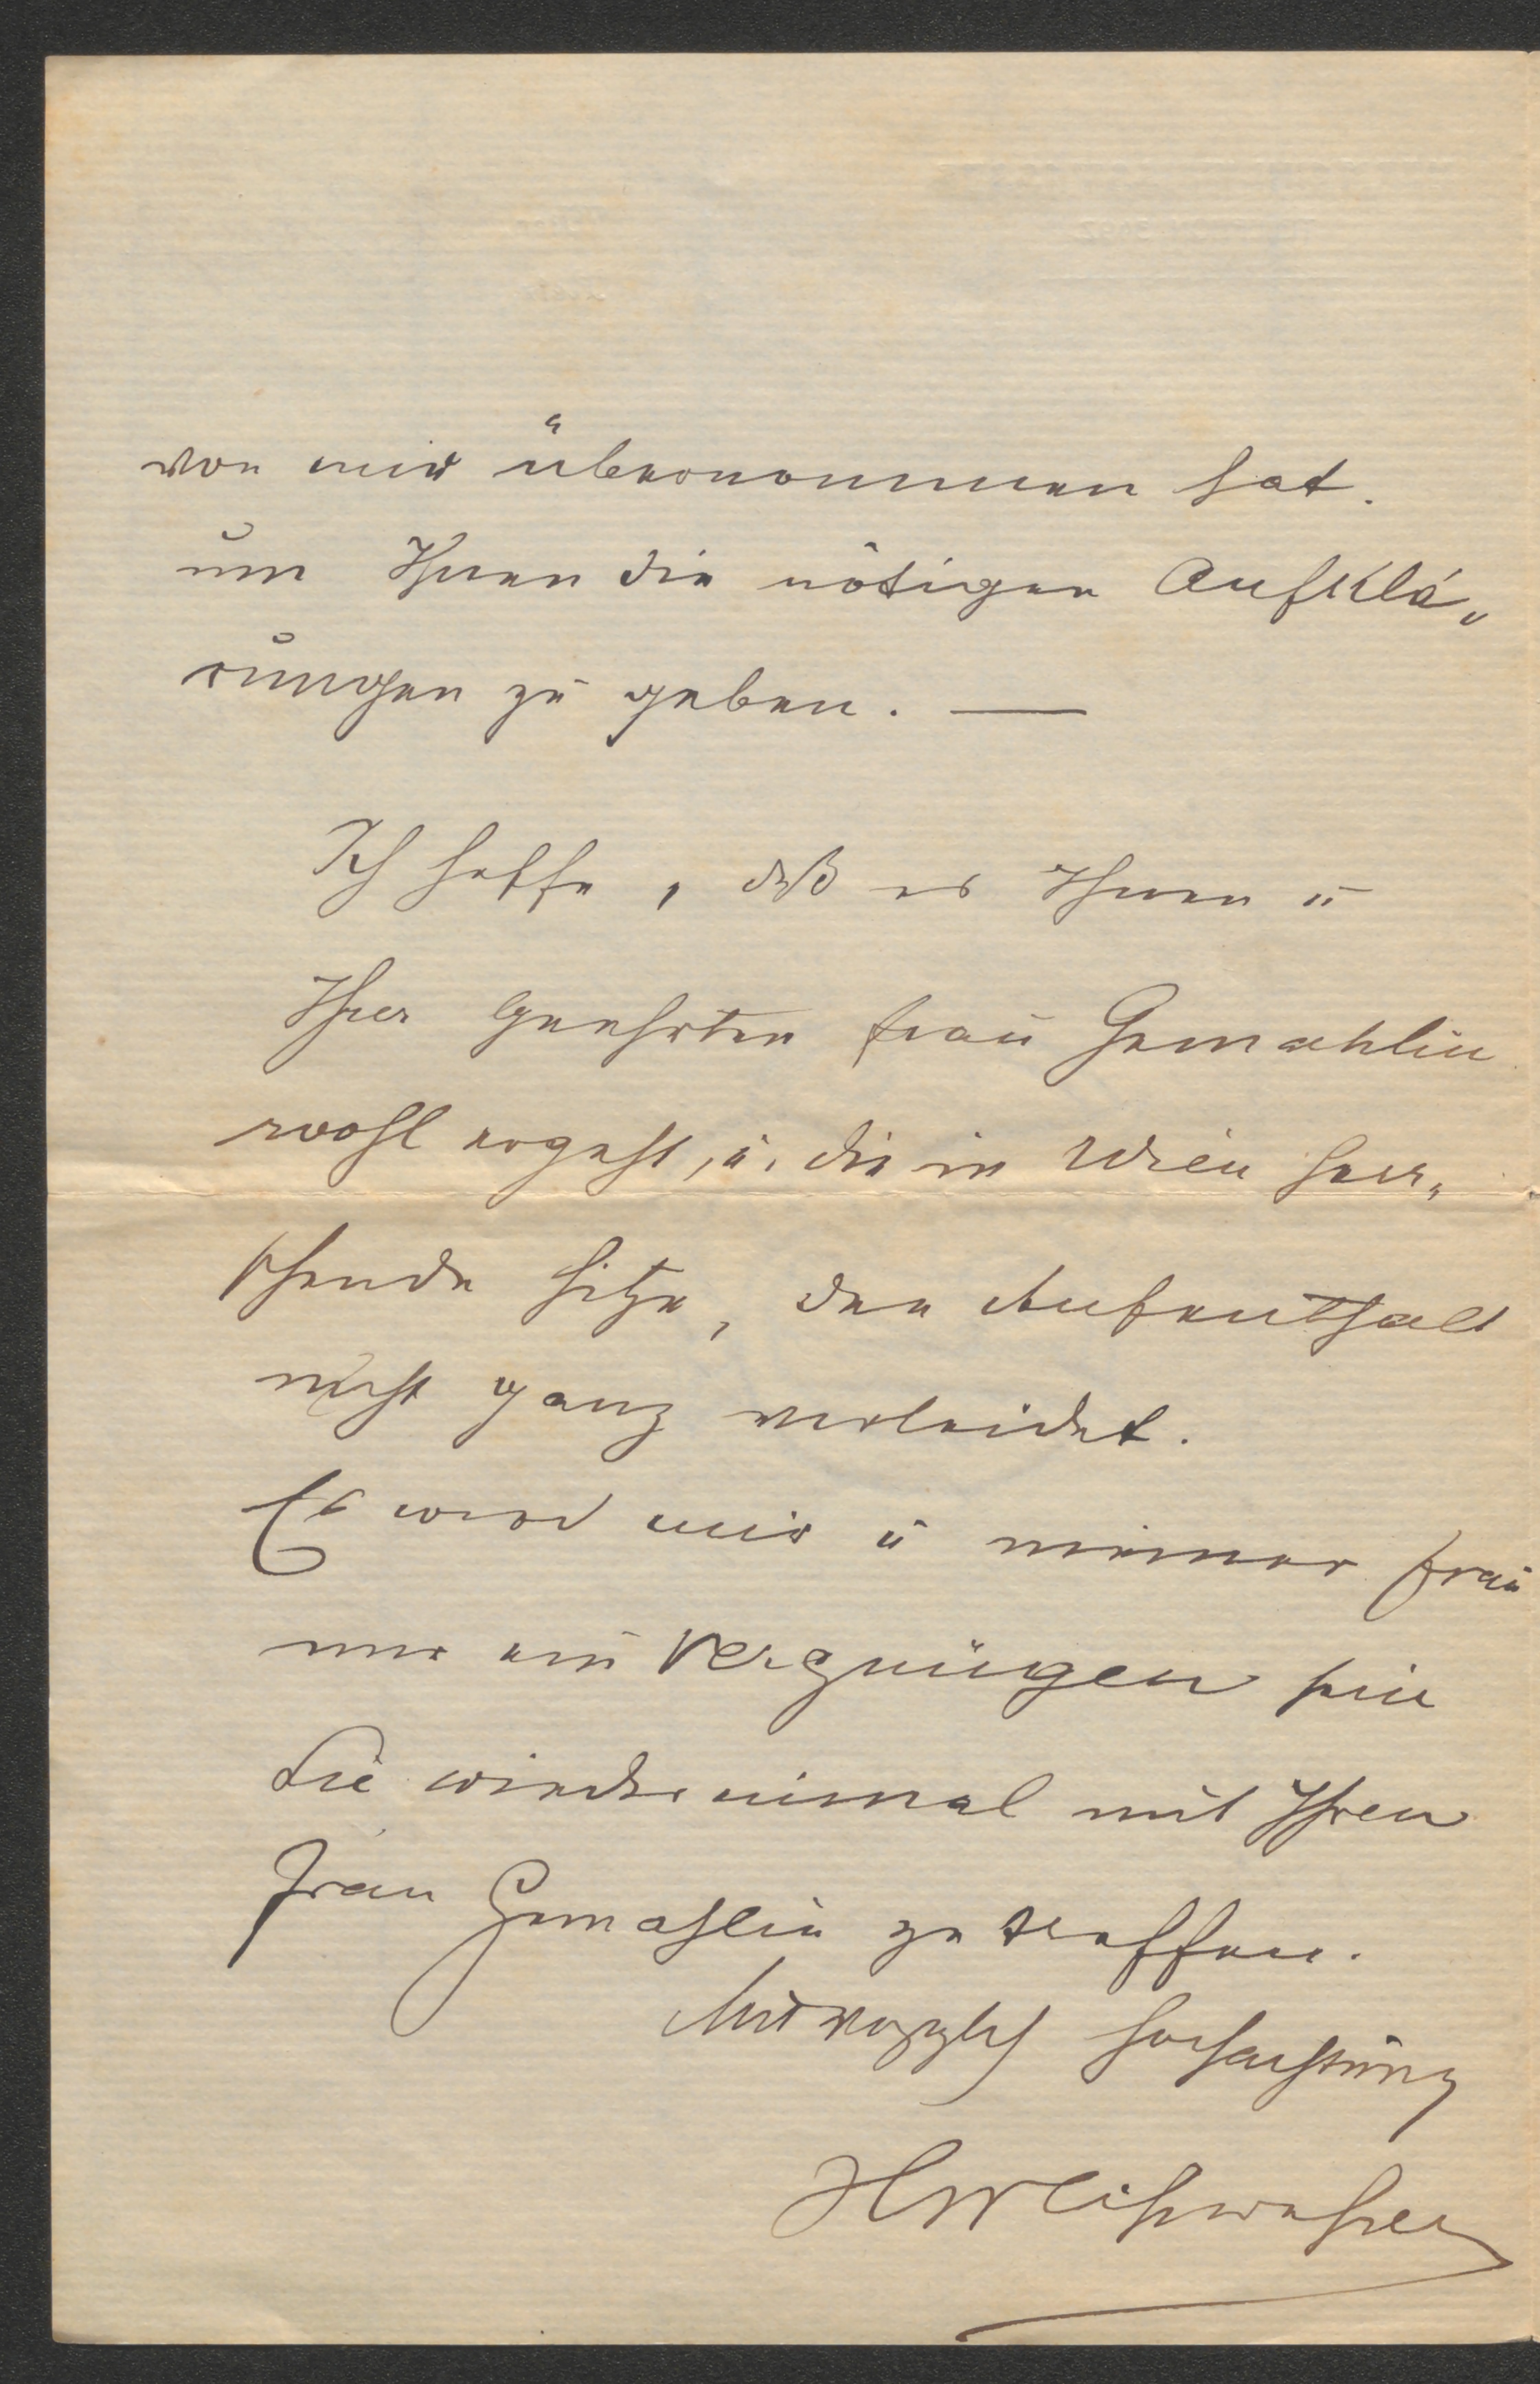 von mir übernommen hat.
um Ihnen die nötigen Aufklä„
rungen zu geben. —
Ich hoffe, daß es Ihnen u
Ihrer geehrten Frau Gemahlin
wohl ergeht, u. die in Wien herr„
schende Hitze, den Aufenthalt
nicht ganz verleidet.
Es wird mir u meiner Frau
nur ein Vergnügen sein
Sie wieder einmal mit Ihrer
Frau Gemahlin zu treffen.
Mit vorzgl Hochachtung